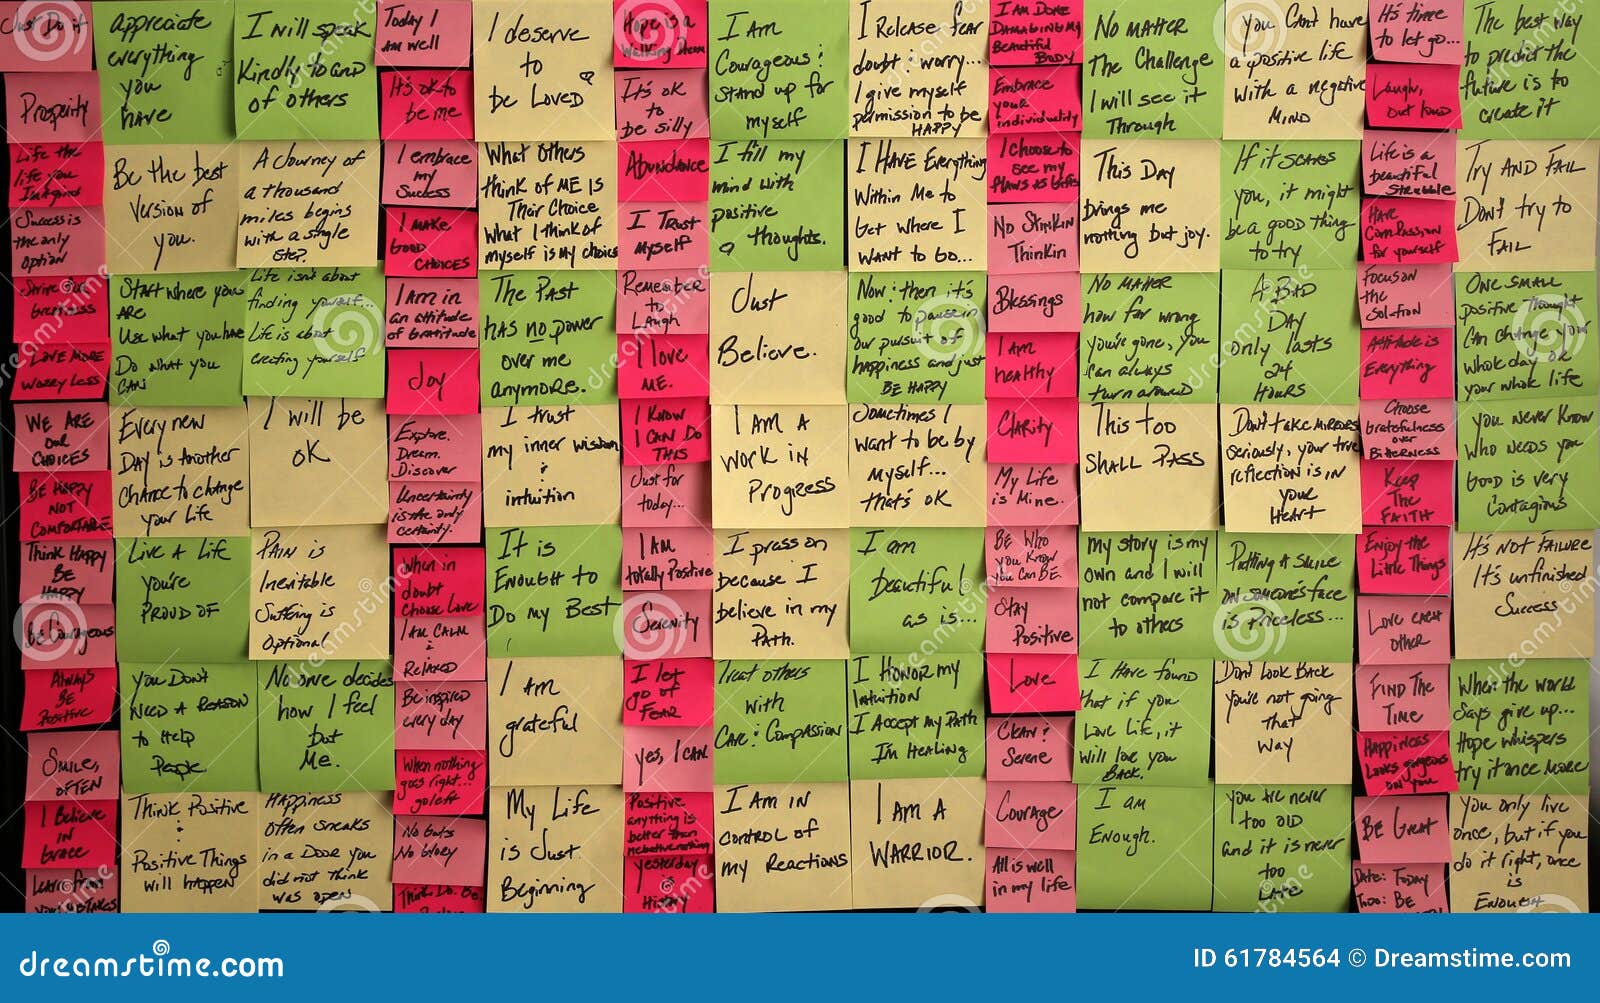 Just Do it
Prosperity
Life the
life you
Imagined
Success is
the only
option
Strive for
Greatness
Love More
Worry Less
WE ARE
OUR
CHOICES
BE HAPPY
NOT
COMFORTABLE
Think Happy
BE
HAPPY
Be Courageous
Always
BE
Positive
SMILE,
OFTEN
I Believe
IN
Grace
Learn from
your MISTAKES
appreciate
everything
you
have
Be the best
Version of
you.
Start where your
ARE
Use what you have
Do what you
CAN
Every new
DAY is Another
Chance to change
your Life
Live A Life
you're
PROUD OF
you Don't
NEED A REASON
to Help
People
Think Positive
&
Positive Things
will happen
I will speak
Kindly to and
of others
A Journey of
a thousand
miles begins
with a single
Step.
Life isn't about
finding yourself...
Life is about
creating yourself
I will be
OK
PAIN is
Inevitable
Suffering is
Optional
No one decides
how I feel
but
Me.
Happiness
often sneaks
in a Door you
did not think
was open
Today I
Am well
It's ok to
be me
I embrace
my
Success
I make
GOOD
CHOICES
I Am in
an attitude
of Gratitude
Joy
Explore.
Dream.
Discover
Uncertainty
is the only
certainty.
When in
doubt
choose Love
I AM CALM
&
RELAXED
Be inspired
every day
When nothing
goes right...
go left
No Guts
No Glory
Think. Do. Be.
I deserve
to
be Loved
What others
think of ME IS
Their Choice
What I think of
myself is my choice
The Past
HAS no power
over me
anymore.
I trust
my inner wisdom
&
intuition
It is
ENOUGH to
Do my Best
I AM
grateful
My Life
is Just
Beginning
Hope is a
Walking Dream
It's OK
to
be silly
Abundance
I TRUST
MYSELF
Remember
to
Laugh
I love
ME.
I KNOW
I CAN DO
THIS
Just for
today...
I AM
totally Positive
Serenity
I let
go of
FEAR
yes, I CAN
Positive
anything is
better than
negative nothing
yesterday
is
History
I AM
Courageous &
Stand up for
myself
I fill my
mind with
positive
thoughts.
Just
Believe.
I AM A
Work in
Progress
I press on
because I
believe in my
Path.
Treat others
with
CARE & COMPASSION
I AM IN
CONTROL OF
my Reactions
I Release fear
doubt & worry...
I give myself
permission to be
HAPPY
I HAVE Everything
Within Me to
Get where I
WANT to Go...
Now & then it's
good to pause in
our pursuit of
happiness and just
BE HAPPY
Sometimes I
want to be by
myself...
that's OK
I am
beautiful
as is...
I HONOR MY
Intuition
I Accept my Path
I'm Healing
I AM A
WARRIOR.
I AM DONE
DAMAGING MY
Beautiful
BODY
Embrace
your
individuality
I choose to
see my
flaws as Gifts
No Stinkin
Thinkin
Blessings
I AM
healthy
Clarity
My Life
is Mine.
BE Who
you Know
you CAN BE.
Stay
Positive
Love
CLEAN &
Serene
Courage
All is well
in my life
NO MATTER
The Challenge
I will see it
Through
This DAY
brings me
nothing but joy.
NO MATTER
how far wrong
you're gone, you
can always
turn around
This too
SHALL PASS
My story is my
own and I will
not compare it
to others
I HAVE FOUND
that if you
love Life, it
will love you
BACK.
I am
Enough.
you Can't have
a positive life
with a negative
MIND
If it scares
you, it might
be a good thing
to try
A BAD
DAY
only lasts
24
HOURS
Don't take MIRRORS
seriously, your true
reflection is IN
your
Heart
Putting A SMILE
ON SOMEONE'S face
is Priceless...
Don't Look BACK
you're not going
that
way
you are never
too old
and it is never
too
late
It's time
to let go...
Laugh,
out loud
Life is a
beautiful
Struggle
HAVE
Compassion
for yourself
Focus on
the
Solution
Attitude is
Everything
Choose
Gratefulness
over
Bitterness
Keep
The
FAITH
Enjoy the
Little Things
Love EACH
OTHER
FIND The
TIME
HAPPINESS
Looks gorgeous
on you
BE Great
Date: TODAY
TODO: BE
The best way
to predict the
future is to
create it
Try AND FAIL
Don't try to
FAIL
ONE SMALL
positive thought
Can change your
whole day OR
your whole life
you Never Know
Who needs you
Good is very
Contagious
It's NOT FAILURE
It's unfinished
Success
When the world
Says give up...
Hope whispers
try it once MORE
You only live
once, but if you
do it right, once
is
ENOUGH
dreamstime.com
ID 61784564 © Dreamstime.com